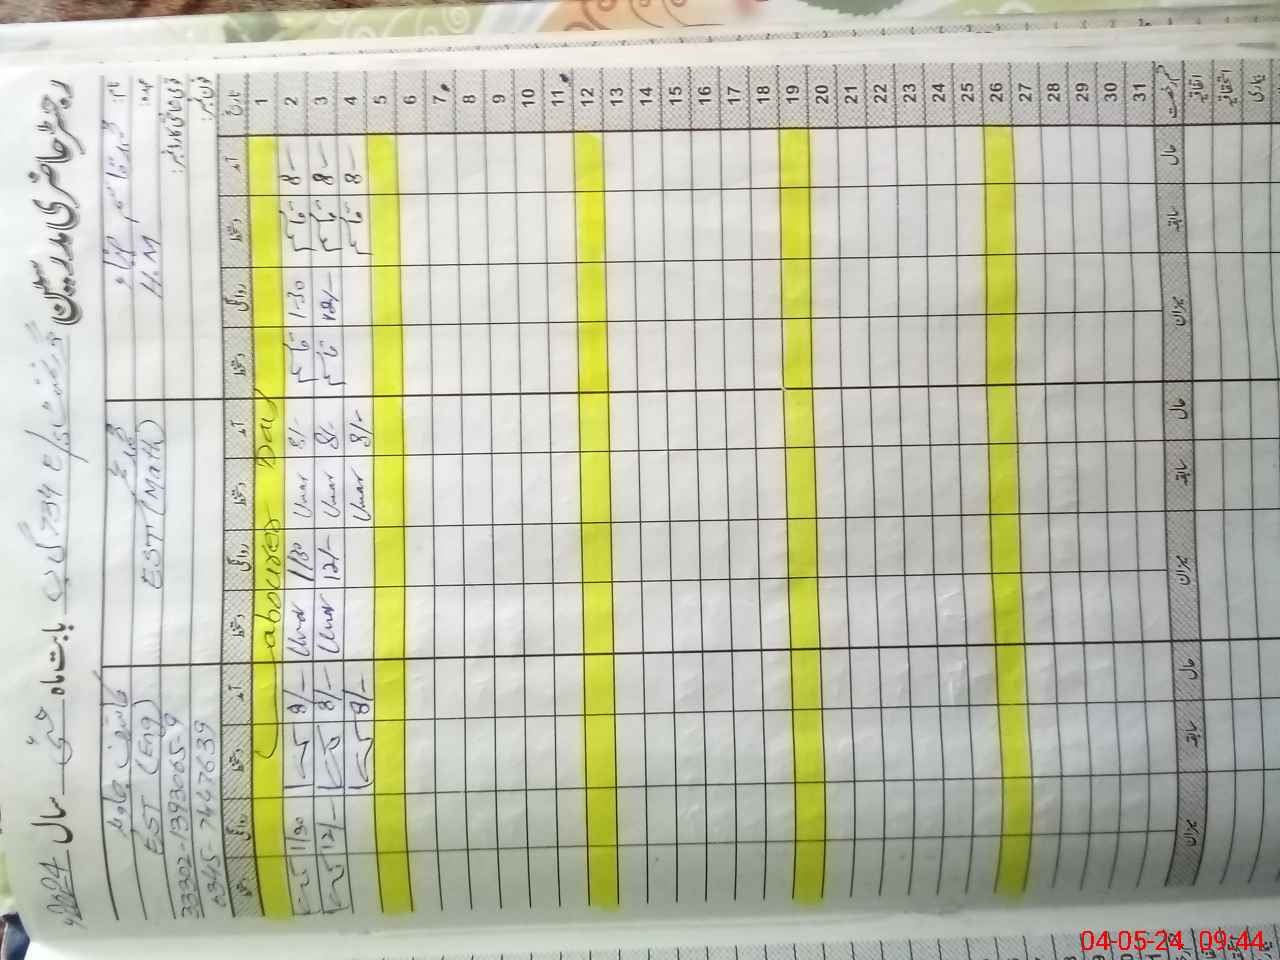 رجسٹر حاضری مدرسین
734 گ ب بابت ماہ مئی سال 2024
نام:
عہدہ: H.M
قومی شناختی کارڈ نمبر:
فون نمبر:
EST (Math)
کاشف جاوید
EST (Eng)
33302-1393065-9
0345-7447639
تاریخ آمد دستخط روانگی دستخط آمد دستخط روانگی دستخط آمد دستخط روانگی دستخط
1 Labourer Day
2 8- 1-30 8/- Umar 1/30 Umar 8/- 1/30
3 8- 12/- 8/- Umar 12/- Umar 8/- 12/-
4 8- 8/- Umar 8/-
5
6
7
8
9
10
11
12
13
14
15
16
17
18
19
20
21
22
23
24
25
26
27
28
29
30
31
قسم رخصت حال سابقہ میزان حال سابقہ میزان حال سابقہ میزان
اتفاقیہ
استحقاقیہ
بیماری
04-05-24 09:44